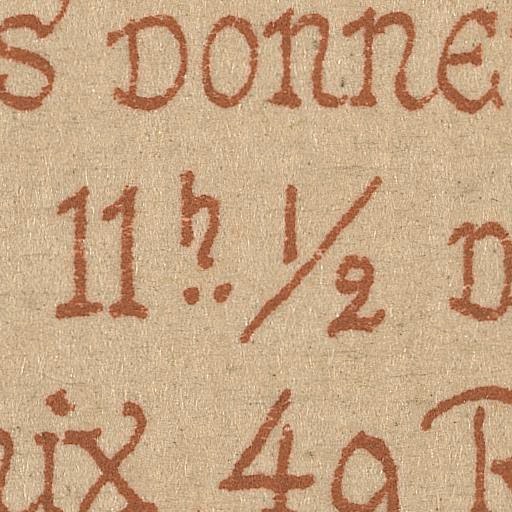 S DONNE
11 h. 1/2 D
ix 49 R